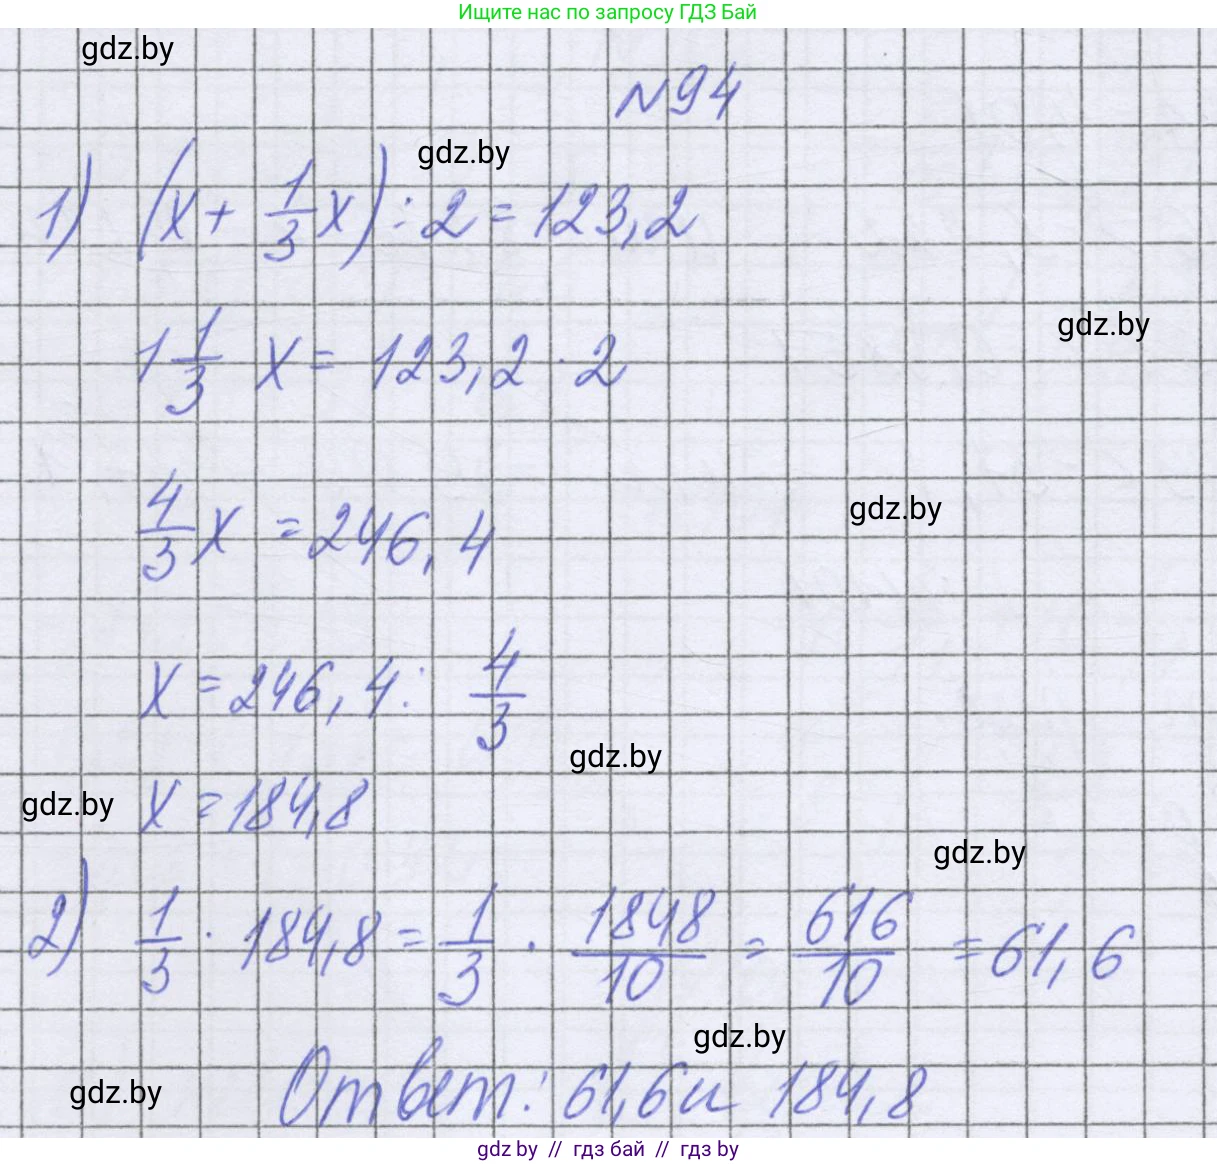 Ищите нас по запросу ГДЗ Бай
gdz.by
N94
gdz.by
1) (x + 1/3 x) : 2 = 123,2
gdz.by
1 1/3 x = 123,2 · 2
4/3 x = 246,4
gdz.by
x = 246,4 : 4/3
gdz.by
gdz.by
x = 184,8
gdz.by
2) 1/3 · 184,8 = 1/3 · 1848/10 = 616/10 = 61,6
gdz.by
gdz.by
Ответ: 61,6 и 184,8
gdz by // гдз бай // гдз by